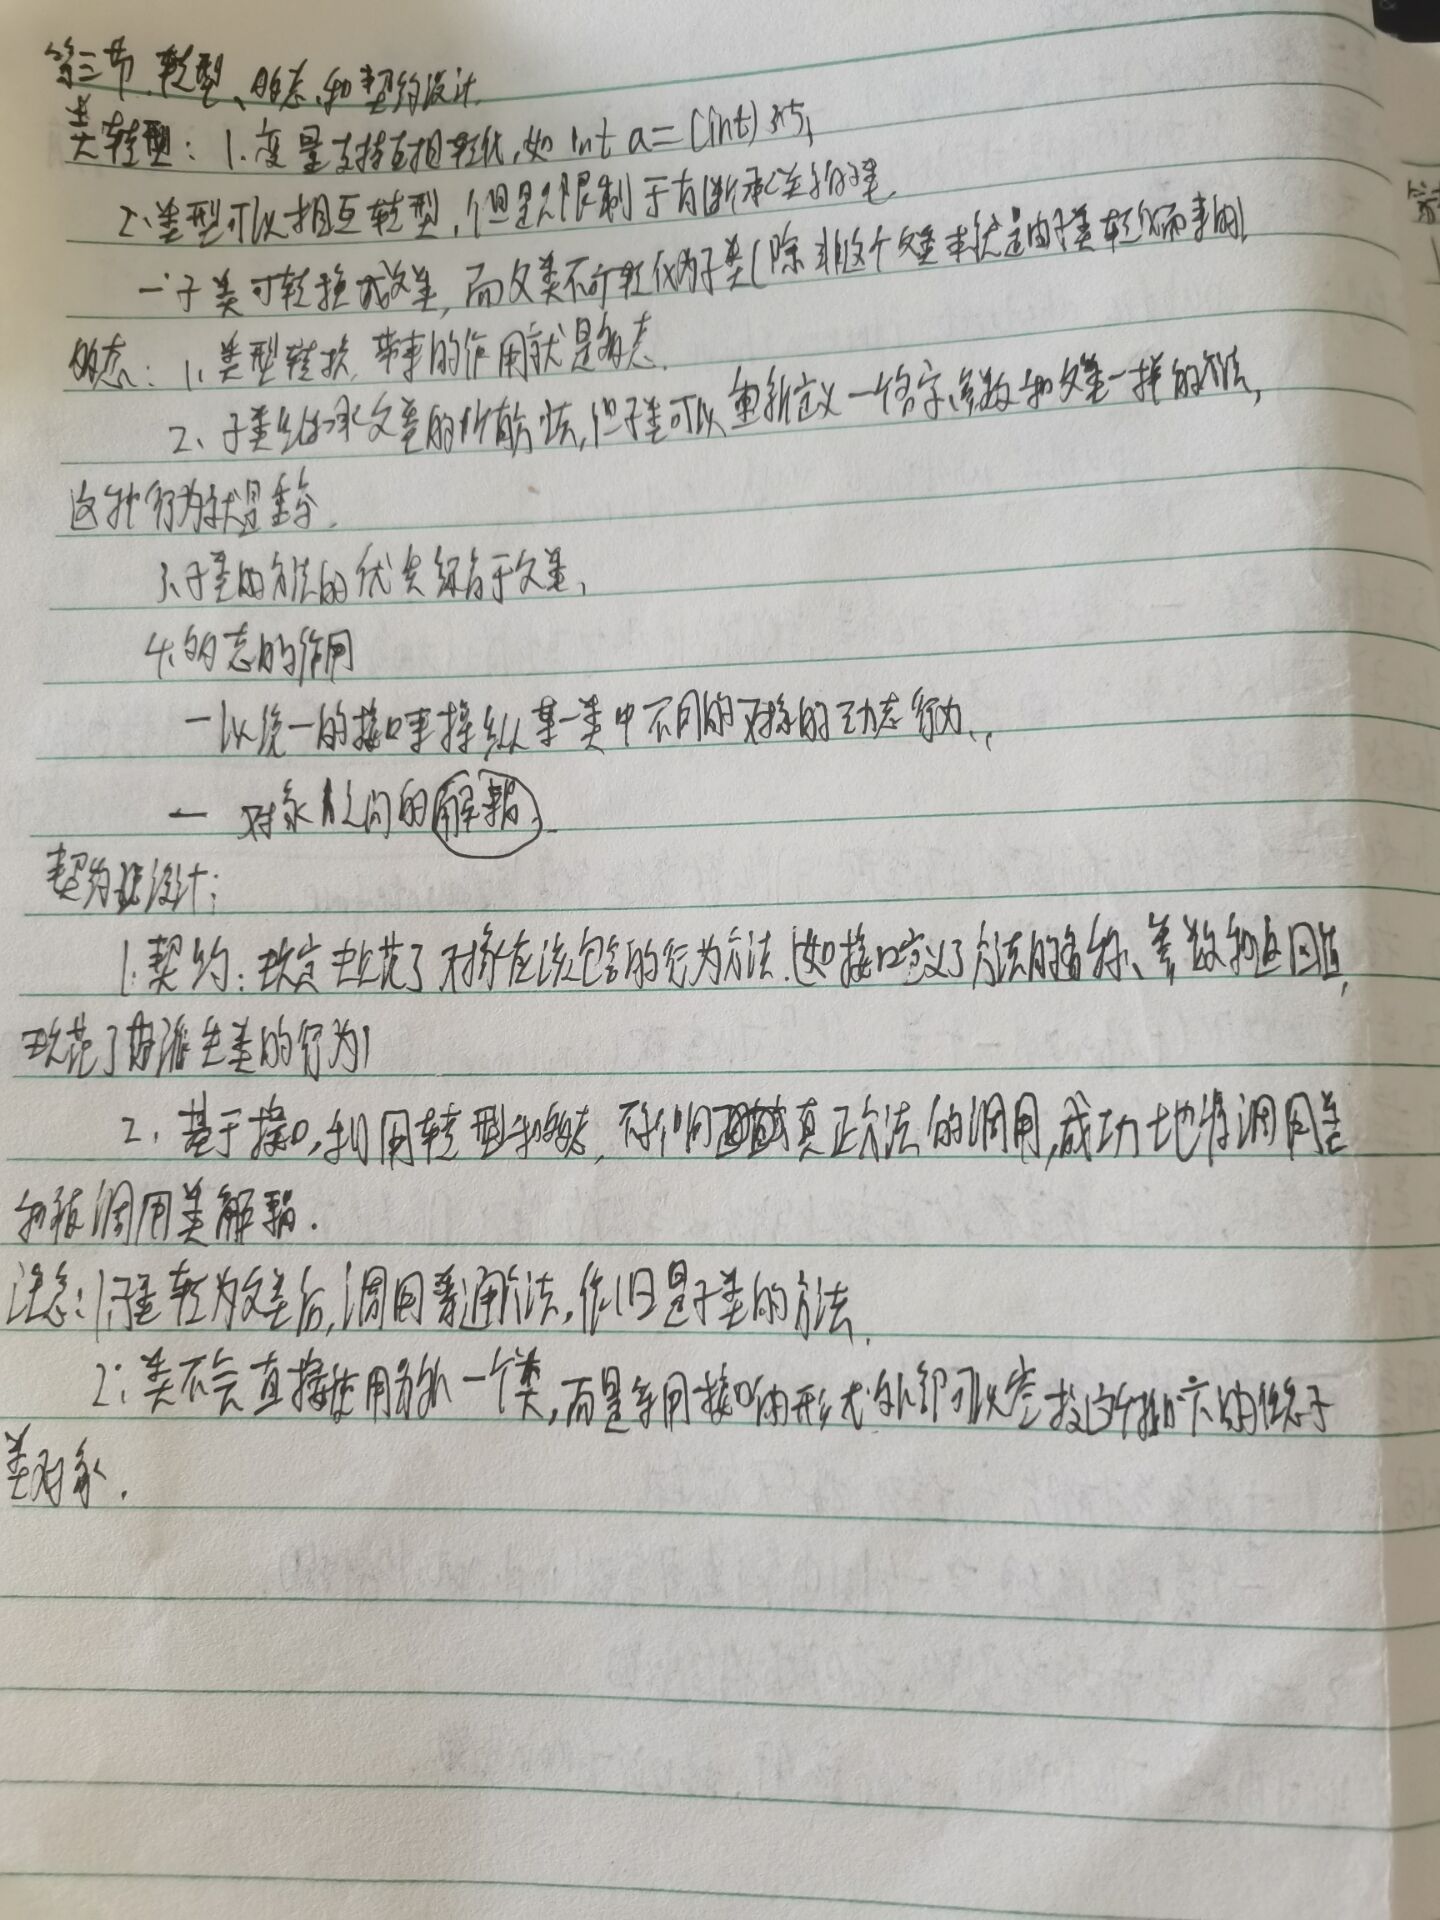 第三节 转型、多态和契约设计
类转型：1.变量支持互相转化，如 int a=(int)3.5;
2.类型可以相互转型，但是只限制于有继承关系的类
一子类可转换成父类，而父类不可转化为子类(除非这个父类本就是由子类转化而来的)
多态：1.类型转换,带来的作用就是多态.
2、子类继承父类的所有方法,但子类可以重新定义一个名字、参数和父类一样的方法,
这种行为就是重写.
3、子类的方法的优先级高于父类,
4.多态的作用
一以统一的接口来操纵某一类中不同的对象的动态行为.
一 对象之间的解耦.
契约设计：
1.契约：规定规范了对象应该包含的行为方法.(如接口定义了方法的名称、参数和返回值,
规范了派生类的行为)
2.基于接口,利用转型和多态,不影响真正方法的调用,成功地将调用类
和被调用类解耦.
注意：1.子类转为父类后,调用普通方法,依旧是子类的方法.
2.类不会直接使用另外一个类,而是采用接口的形式,外部可以空投这个接口下的任意子
类对象.